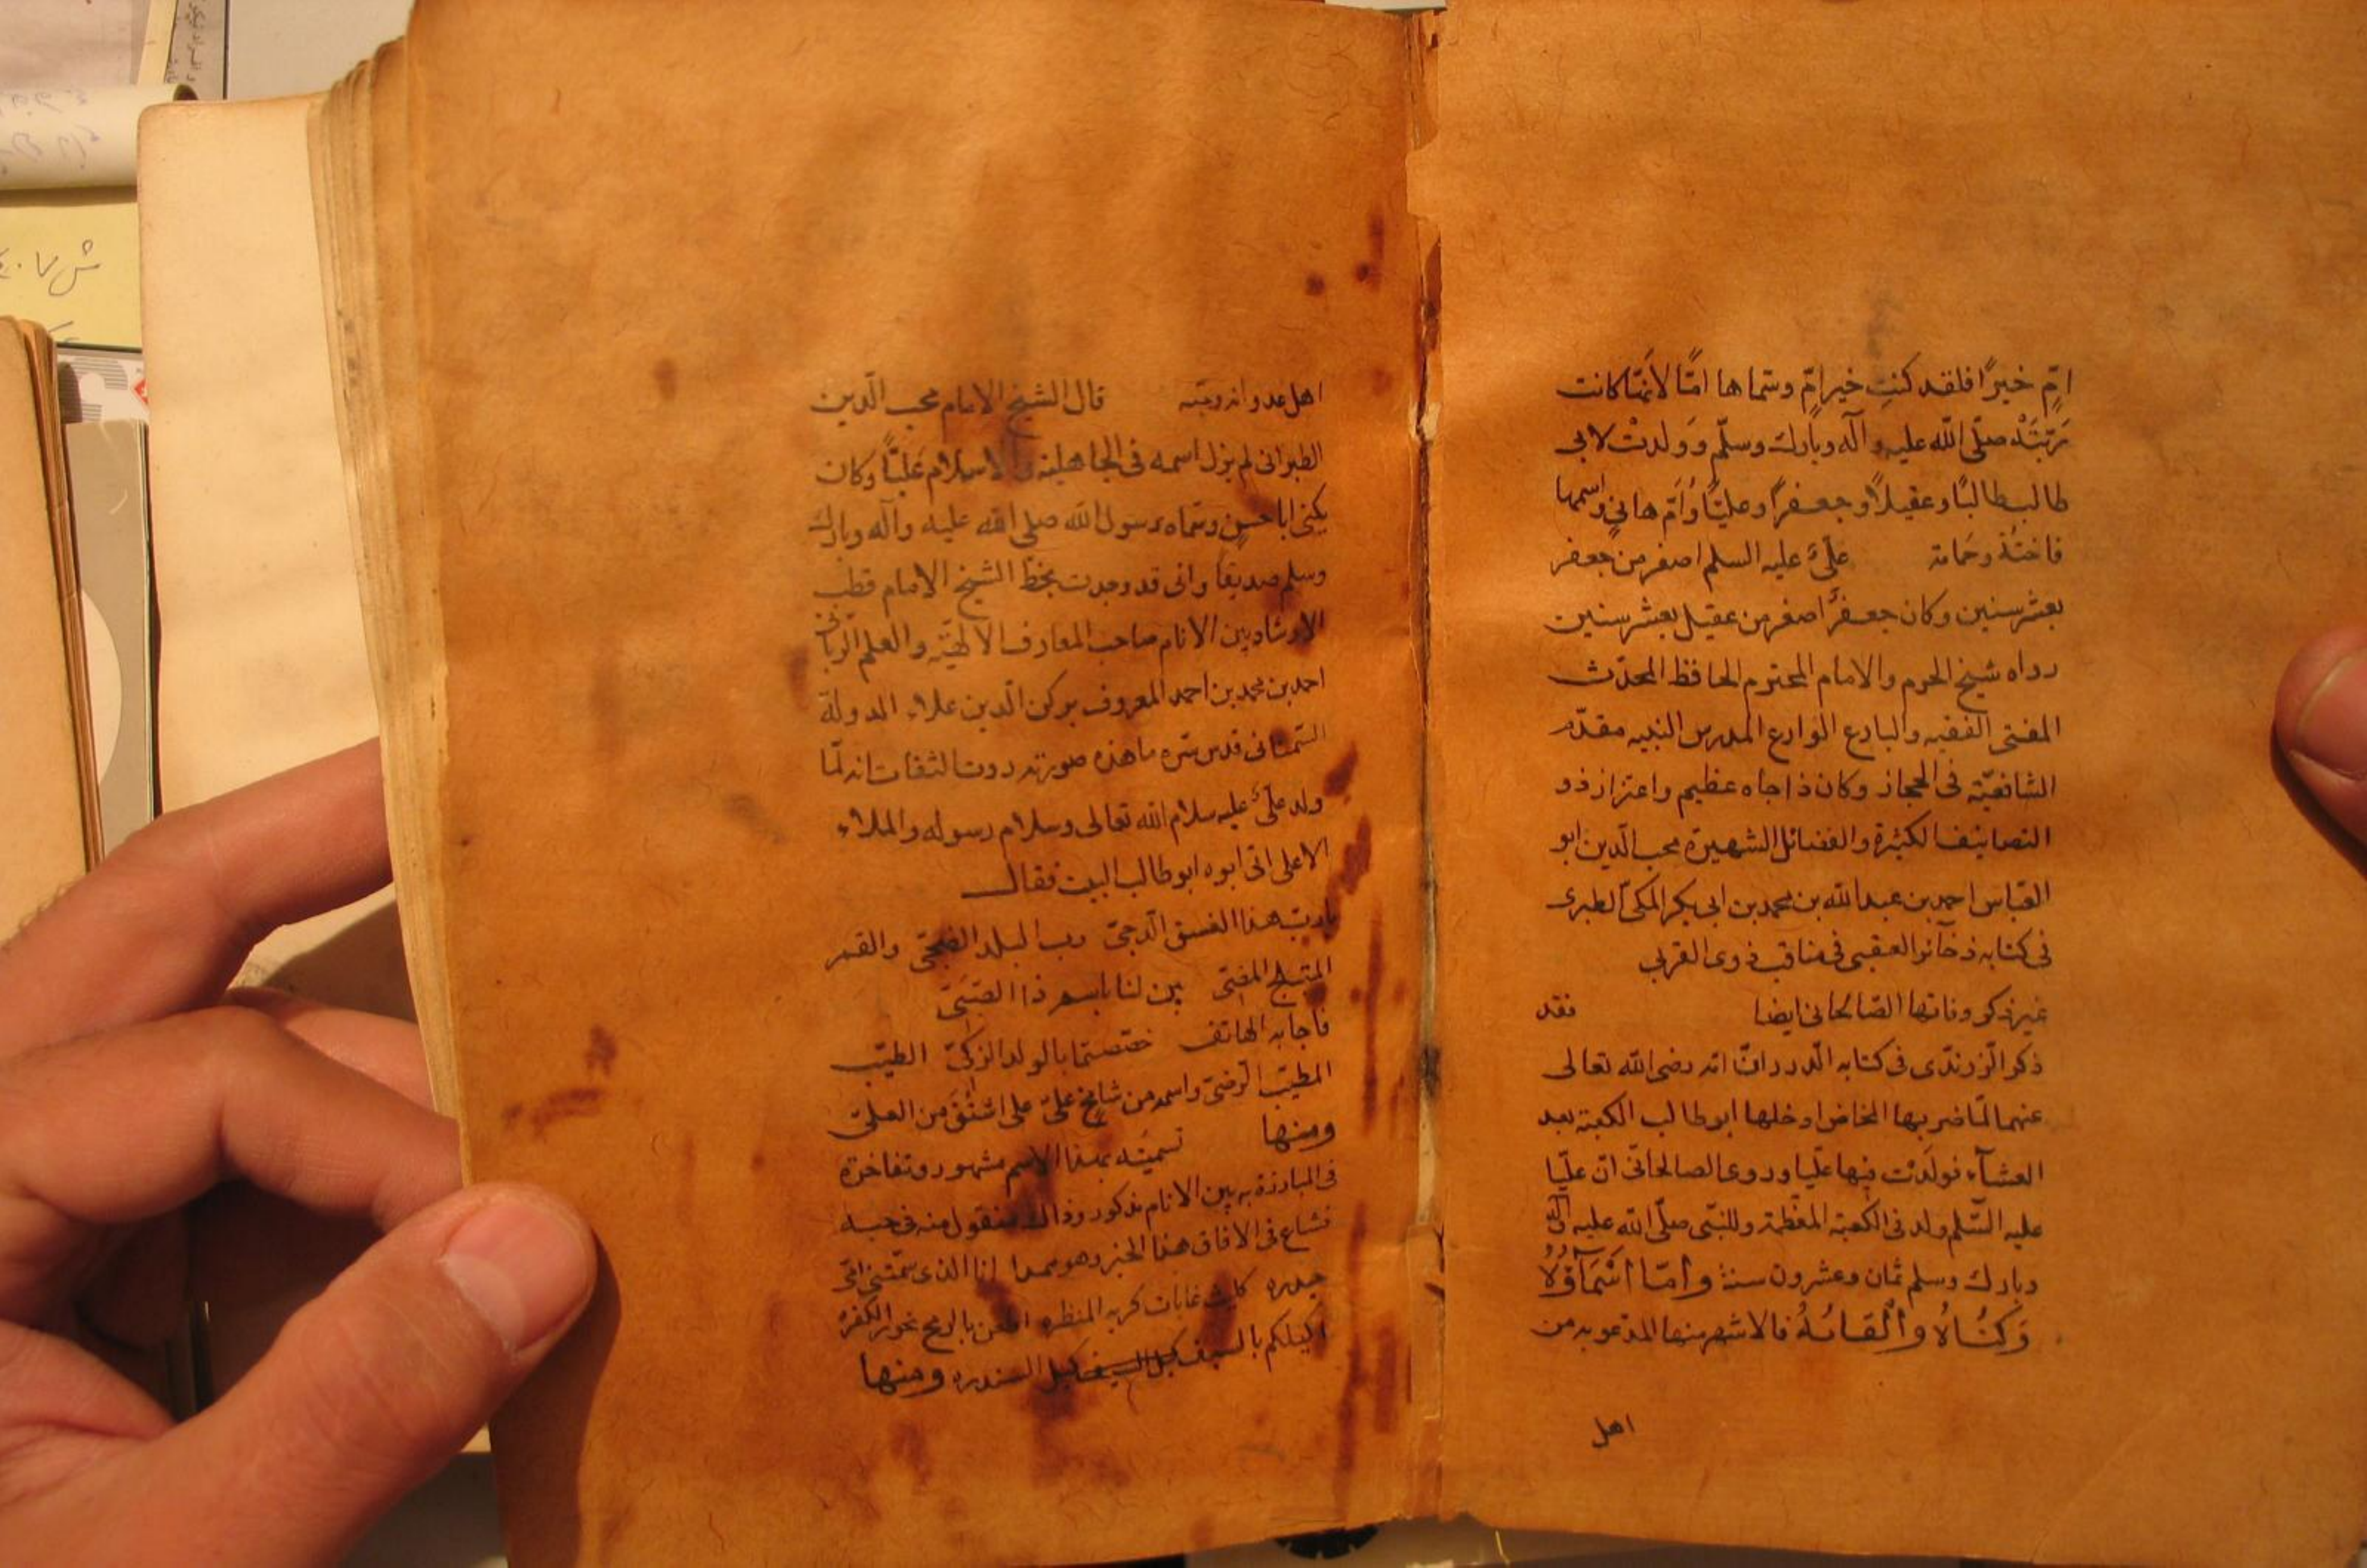 امّ خيرًا فلقد كنتِ خير امّ وسمّاها امًّا لانّها كانت
رَبَّتْه صلّى الله عليه وآله وبارك وسلّم وَولدتْ لابى
طالب طالبًا وعقيلاً وجعفرًا وعليًّا وَاُمّ هانىٍ واسمها
فاختة وحمامة علىّ عليه السلم اصغر من جعفر
بعشر سنين وكان جعفرٌ اصغر من عقيل بعشر سنين
رواه شيخ الحرم والامام المحترم الحافظ المحدّث
المفتى الفقيه والبارع الوارع المدرس النبيه مقدّم
الشافعيّة فى الحجاز وكان ذا جاه عظيم واعتزاز ذو
التصانيف الكثيرة والفضائل الشهيرة محب الّدين ابو
العبّاس احمد بن عبد الله بن محمد بن ابى بكر المكىّ الطبرى
فى كتابه ذخائر العقبى فى مناقب ذوى القربى
غير ذكر وفاتها الصّالحانى ايضا فقد
ذكر الّزرندّى فى كتابه الّدرر انّ امّه رضى الله تعالى
عنهما لمّا ضربها المخاض ادخلها ابو طالب الكعبة بعد
العشآء فولدَتْ فيها عليّا وروى الصالحانّى انّ عليّا
عليه السّلم ولد فى الكعبة المعّظمة وللنبّى صلّى الله عليه وآله
وبارك وسلم ثمان وعشرون سنة وامّا اَسْمَآؤُهُ
وَكُنَاهُ وَاَلْقَابُهُ فالاشهر منها المدعو به من
اهل
اهل عدوانه ومحبّته قال الشيخ الامام محب الّدين
الطبرانى لم يزل اسمه فى الجاهلية والاسلام عليًّا وكان
يكنى ابا حسن وسمّاه رسول الله صلى الله عليه وآله وبارك
وسلم صديقا وانى قد وجدت بخطّ الشيخ الامام قطب
الارشاد بين الانام صاحب المعارف الالهيّة والعلم الّربانىّ
احمد بن محمد بن احمد المعروف بركن الّدين علاء الدولة
السّمنانى قدس سّره ما هذه صورته روت الثقات انه لمّا
ولد علىّ عليه سلام الله تعالى وسلام رسوله والملاء
الاعلى اتى ابوه ابو طالب البيت فقال
يا ربّ هذا الغسق الّدجىّ رب البلد والقمر
المبتلج المضىّ بين لنا باسم ذا الصّبىّ
فاجابه الهاتف خصّصتما بالولد الزكىّ الطيّب
المطيّب الّرضىّ واسمه من شامخ علىّ علىّ اشتُقَّ من العلىّ
ومنها تسميته بهذا الاسم مشهور وتفاخره
فى المبارزة به بين الانام مذكور وذاك منقول منه فى حيبه
فشاع فى الافاق هذا الخبر وهو انا الذى سمّتنى امّى
حيدره كليث غابات كريه المنظره اطعن بالرمح نحور الكفره
اكيلكم بالسيف كيل السندره ومنها